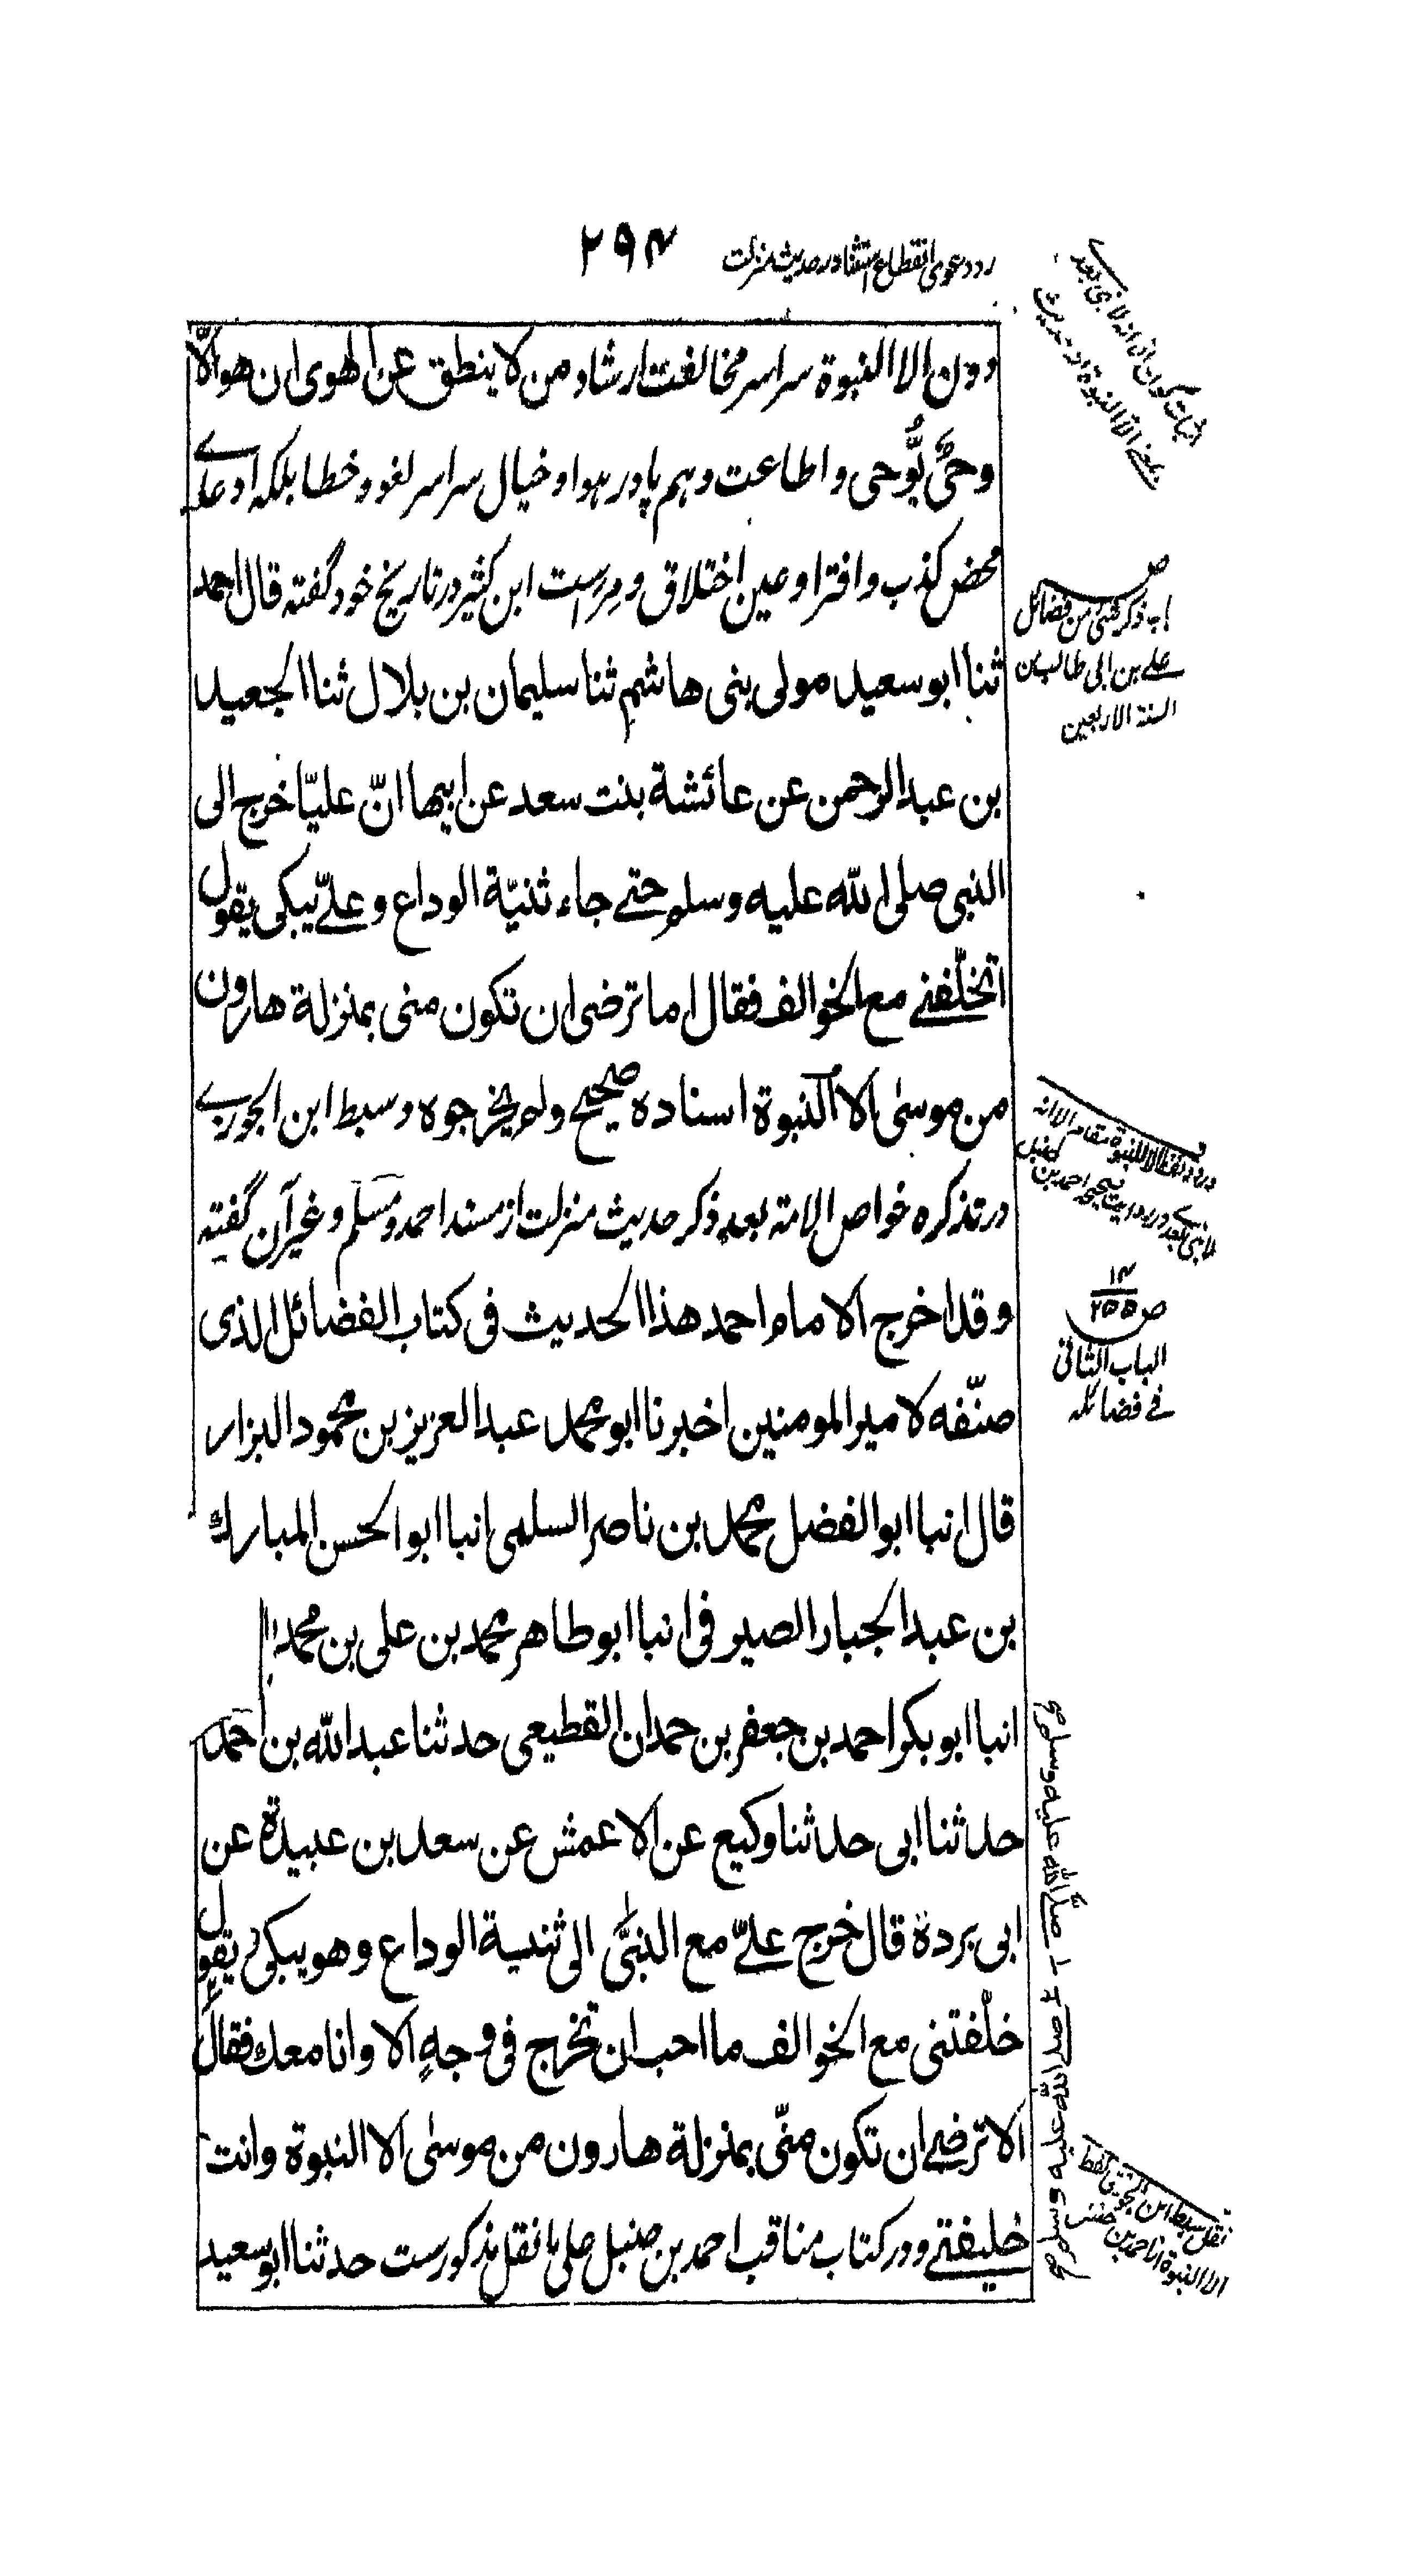 رد دعوی انقطاع استثنا در حدیث منزلت ۲۹۴
دون الا النبوة سراسر مخالفت ارشاد من لا ینطق عن الهوی ان هو الّا
وحیٌ یُّوحی و اطاعت وهم پا در هوا و خیال سراسر لغو و خطا بلکه ادعای
محض کذب و افترا و عین اختلاق و مراست ابن کثیر در تاریخ خود گفته قال احمد
ثنا ابو سعید مولی بنی هاشم ثنا سلیمان بن بلال ثنا الجعید
بن عبد الرحمن عن عائشة بنت سعد عن ابیها انّ علیّا خرج الی
النبی صلی الله علیه وسلم حتے جاء ثنیّة الوداع و علےّ یبکی یقول
اتخلّفنے مع الخوالف فقال اما ترضی ان تکون منی بمنزلة هارون
من موسٰی الا النبوة اسناده صحیح ولم یخرجوه و سبط ابن الجوزے
در تذکره خواص الامة بعد ذکر حدیث منزلت از مسند احمد و مسلم و غیر آن گفته
و قد اخرج الامام احمد هذا الحدیث فی کتاب الفضائل الذی
صنّفه لامیر المومنین اخبرنا ابو محمد عبد العزیز بن محمود البزار
قال انبا ابو الفضل محمد بن ناصر السلمی انبا ابو الحسن المبارک
بن عبد الجبار الصیرفی انبا ابو طاهر محمد بن علی بن محمد
انبا ابو بکر احمد بن جعفر بن حمدان القطیعی حدثنا عبد الله بن احمد
حدثنا ابی حدثنا وکیع عن الاعمش عن سعد بن عبیدة عن
ابی بردة قال خرج علےّ مع النبیّ الی ثنیة الوداع وهو یبکی و یقول
خلّفتنی مع الخوالف ما احب ان تخرج فی وجهٍ الا و انا معک فقال
الا ترضے ان تکون منّی بمنزلة هارون من موسٰی الا النبوة و انت
خلیفتے و در کتاب مناقب احمد بن حنبل علی ما نقل مذکورست حدثنا ابو سعید
اثبات کون انه لا نبی بعدے
بمعنے الا النبوة از حدیث
ص
باب ذکر شئ من فضائل
علے بن ابی طالب من
السنة الاربعین
ورود لفظ الا النبوة مقام الا انه
لا نبی بعدے در روایت صحیحه احمد بن حنبل
۱۴
ص ۲۵۵
الباب الثانی
فے فضائله
نقل سبط ابن الجوزی لفظ
الا النبوة از احمد بن حنبل
صلے الله علیه وسلم